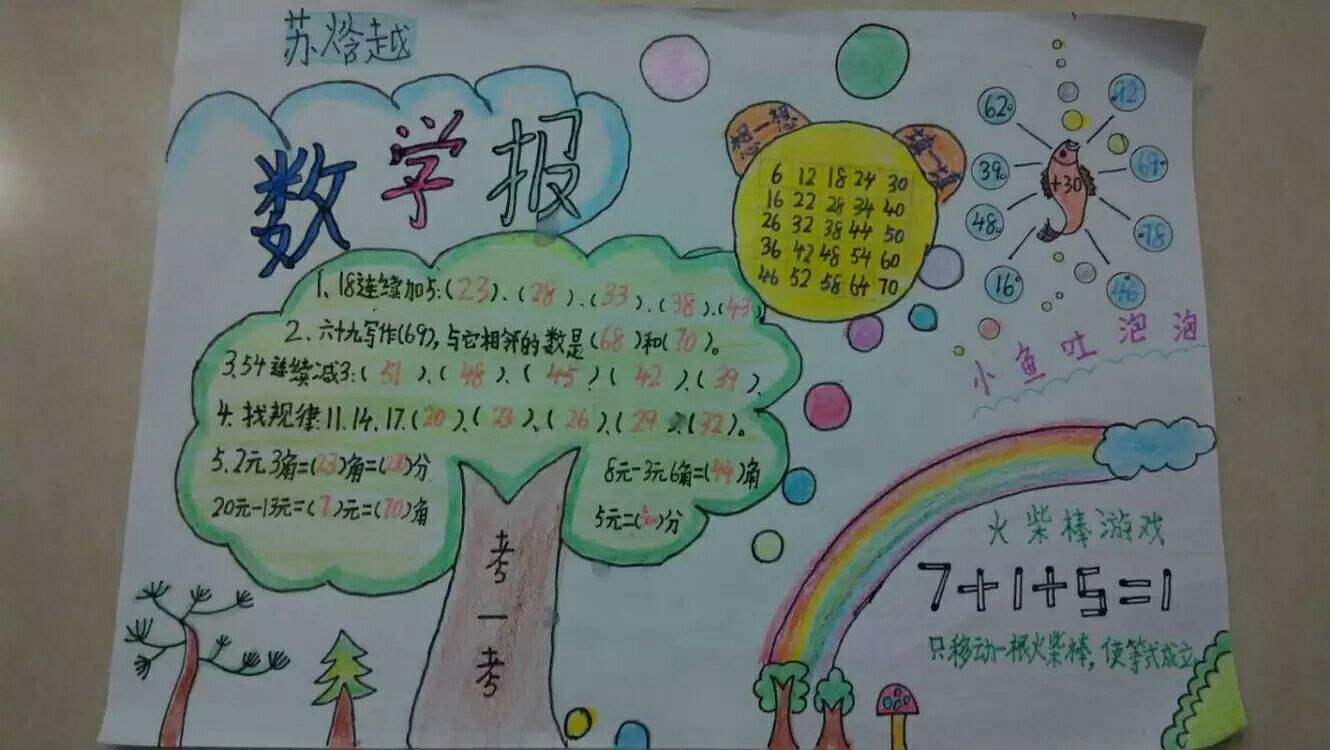 苏烚越
数学报
1、18连续加5:(23)、(28)、(33)、(38)、(43)
2、六十九写作(69),与它相邻的数是(68)和(70)。
3、54连续减3:(51)、(48)、(45)、(42)、(39)、
4、找规律:11、14、17、(20)、(23)、(26)、(29)、(32)。
5、2元3角=(23)角=(230)分
8元-3元6角=(44)角
20元-13元=(7)元=(70)角
5元=(500)分
考一考
想一想
填一填
6 12 18 24 30
16 22 28 34 40
26 32 38 44 50
36 42 48 54 60
46 52 58 64 70
62
92
39
+30
69
48
78
16
46
小鱼吐泡泡
火柴棒游戏
7+1+5=1
只移动一根火柴棒,使等式成立